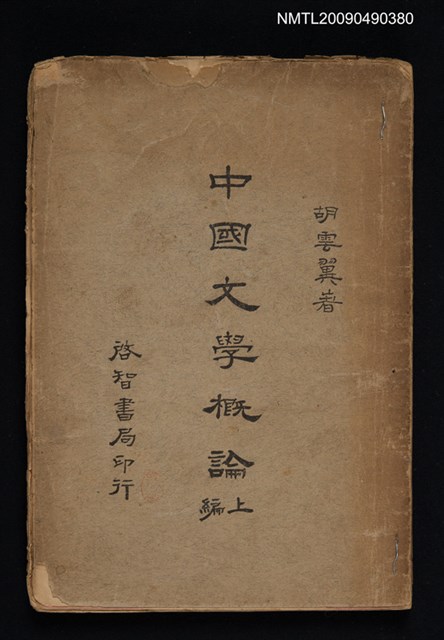 NMTL20090490380
胡雲翼著
中國文學概論
上編
啓智書局印行